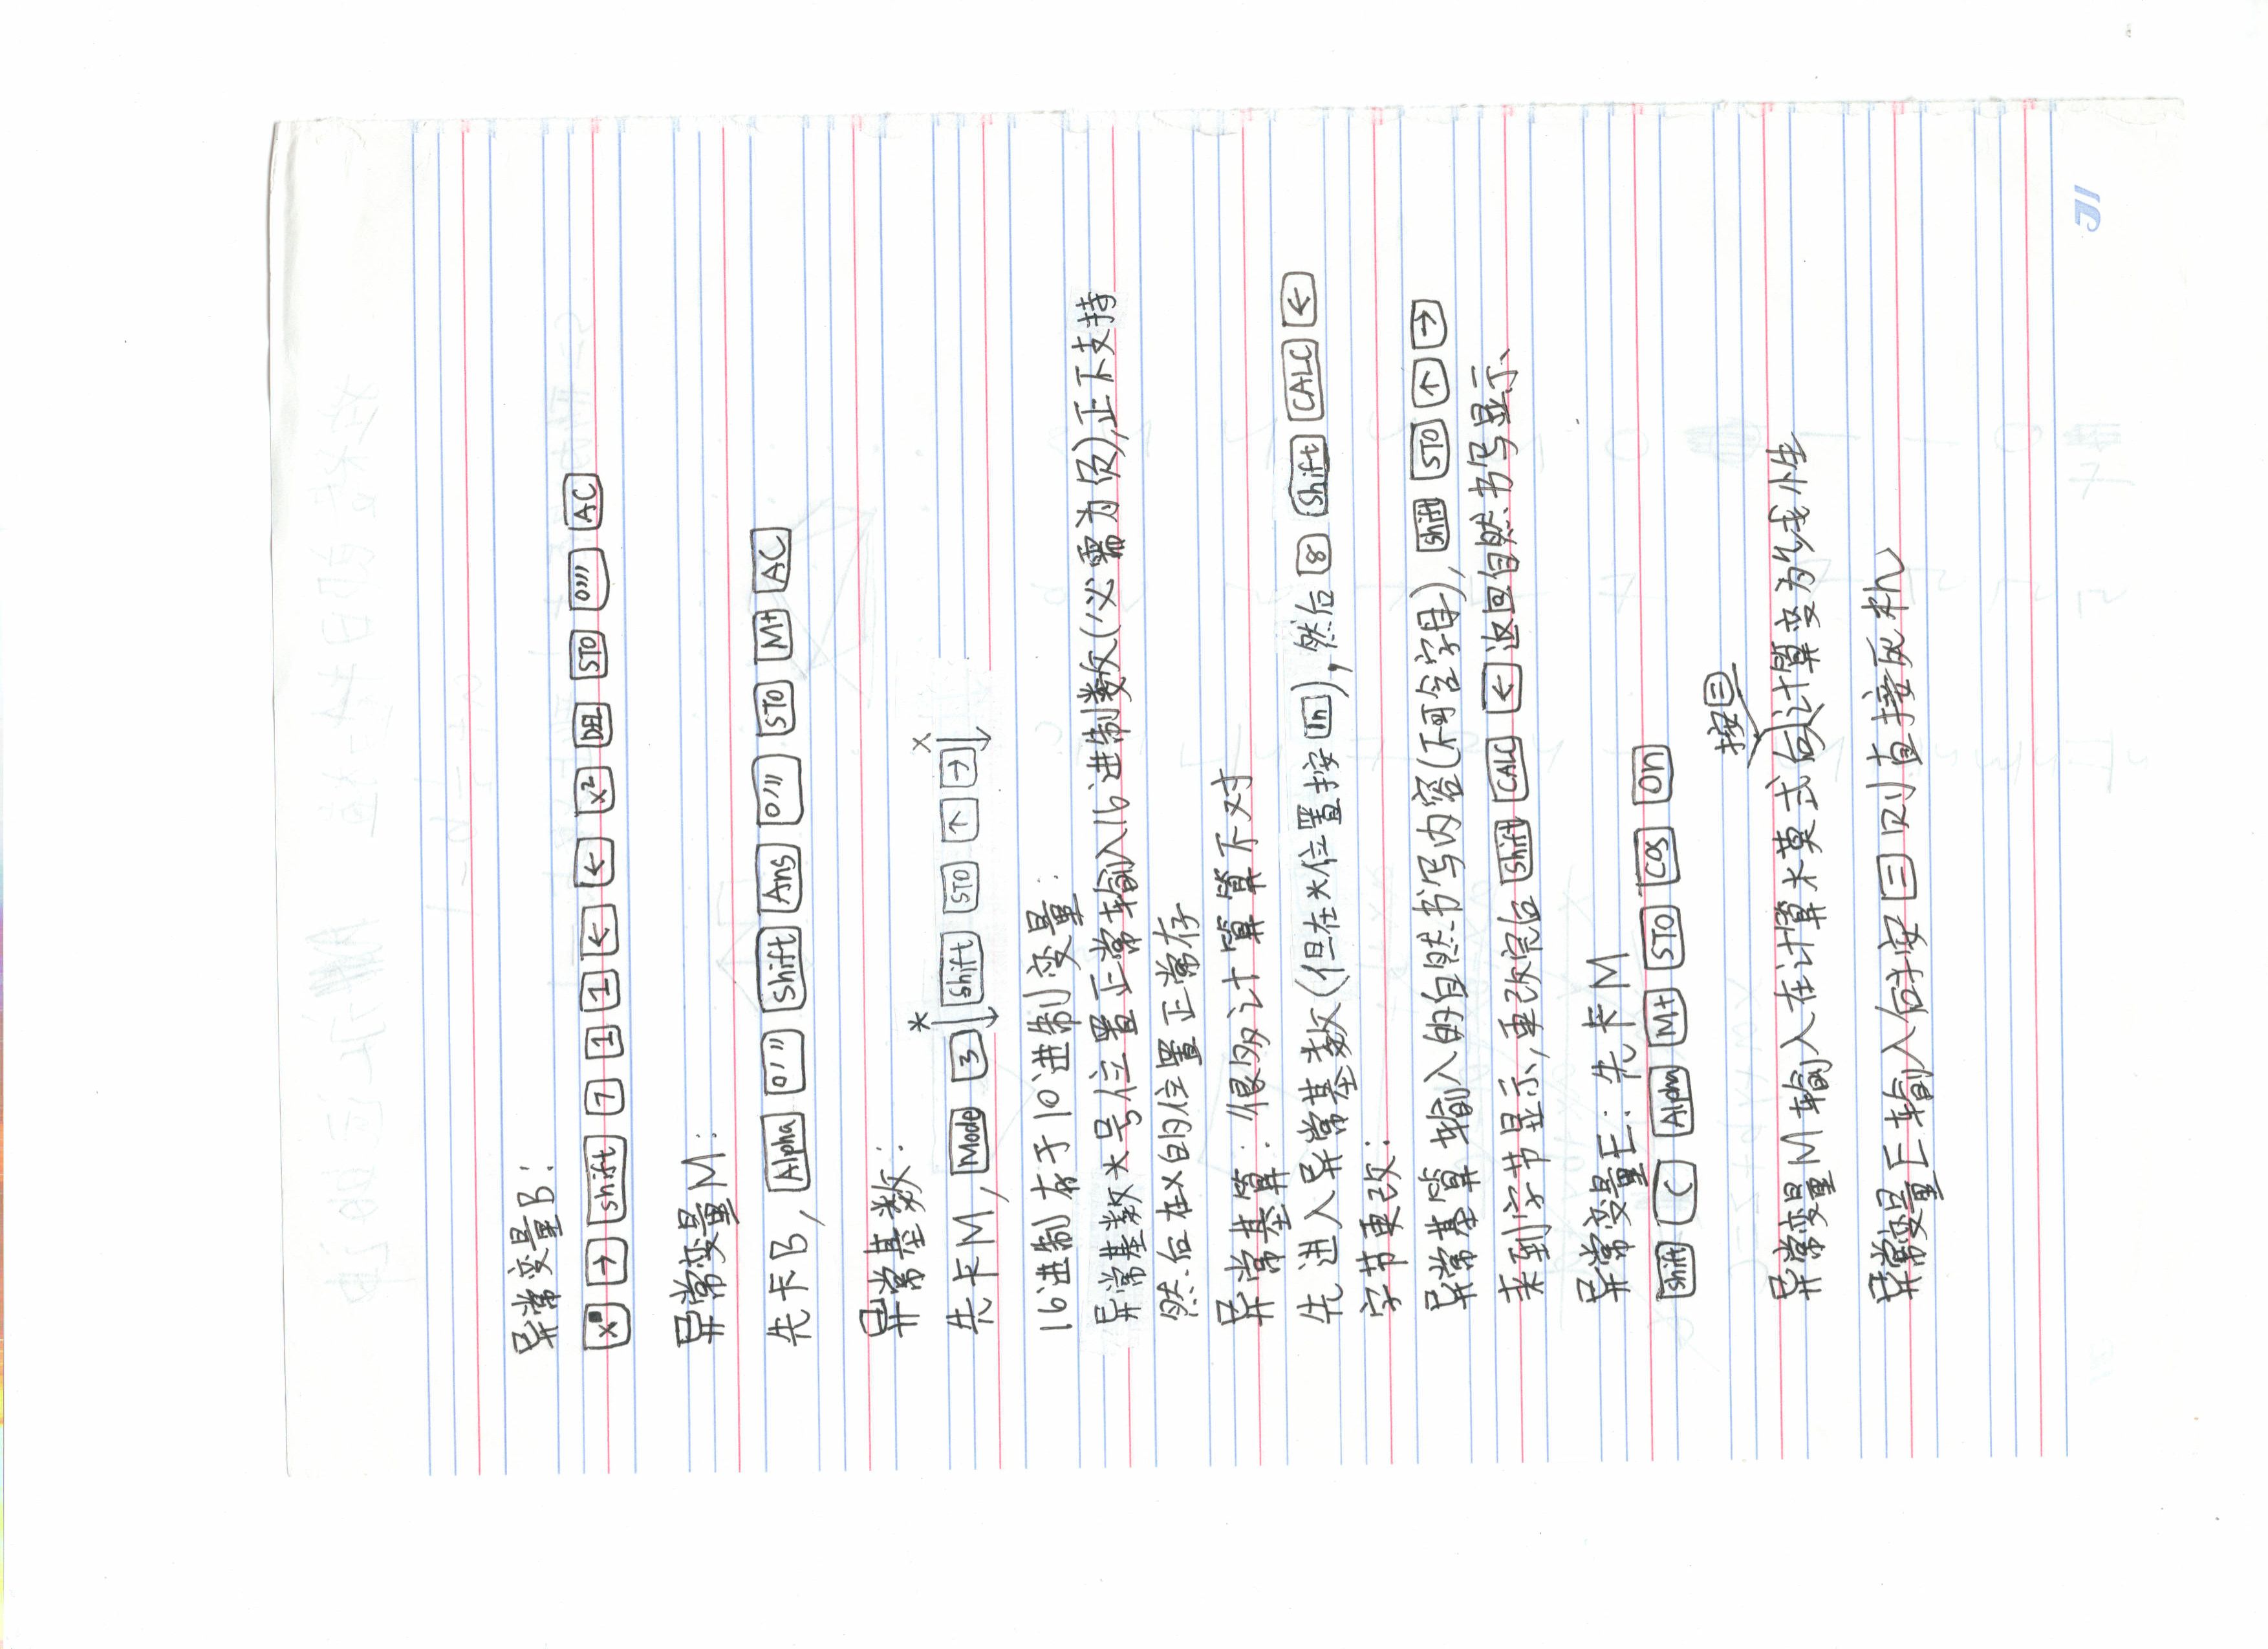 异常变量B:
[x■] [→] [Shift] [7] [1] [1] [←] [←] [x²] [DEL] [STO] [o,,,] [AC]
异常变量M:
先卡B, [Alpha] [o,,,] [Shift] [Ans] [o,,,] [STO] [M+] [AC]
异常基数:
* X
先卡M, [Mode] [3] [Shift] [STO] [↑] [→]
16进制存于10进制变量:
异常基数*号位置正常输入16进制数(必需为负),正不支持
然后在X的位置正常存
异常基算:很多计算算不对
先进入异常基数(但在*位置按[ln]),然后[8] [Shift] [CALC] [←]
字节更改:
异常基算输入的自然书写内容(不可含字母), [Shift] [STO] [↑] [→]
来到字节显示,更改完后[Shift] [CALC] [←]返回自然书写显示、
异常变量E:先卡M
[Shift] [(] [Alpha] [M+] [STO] [cos] [On]
按[=]
异常变量M输入在计算术模式后计算变为线性
异常变量E输入后按[=]则直接死机